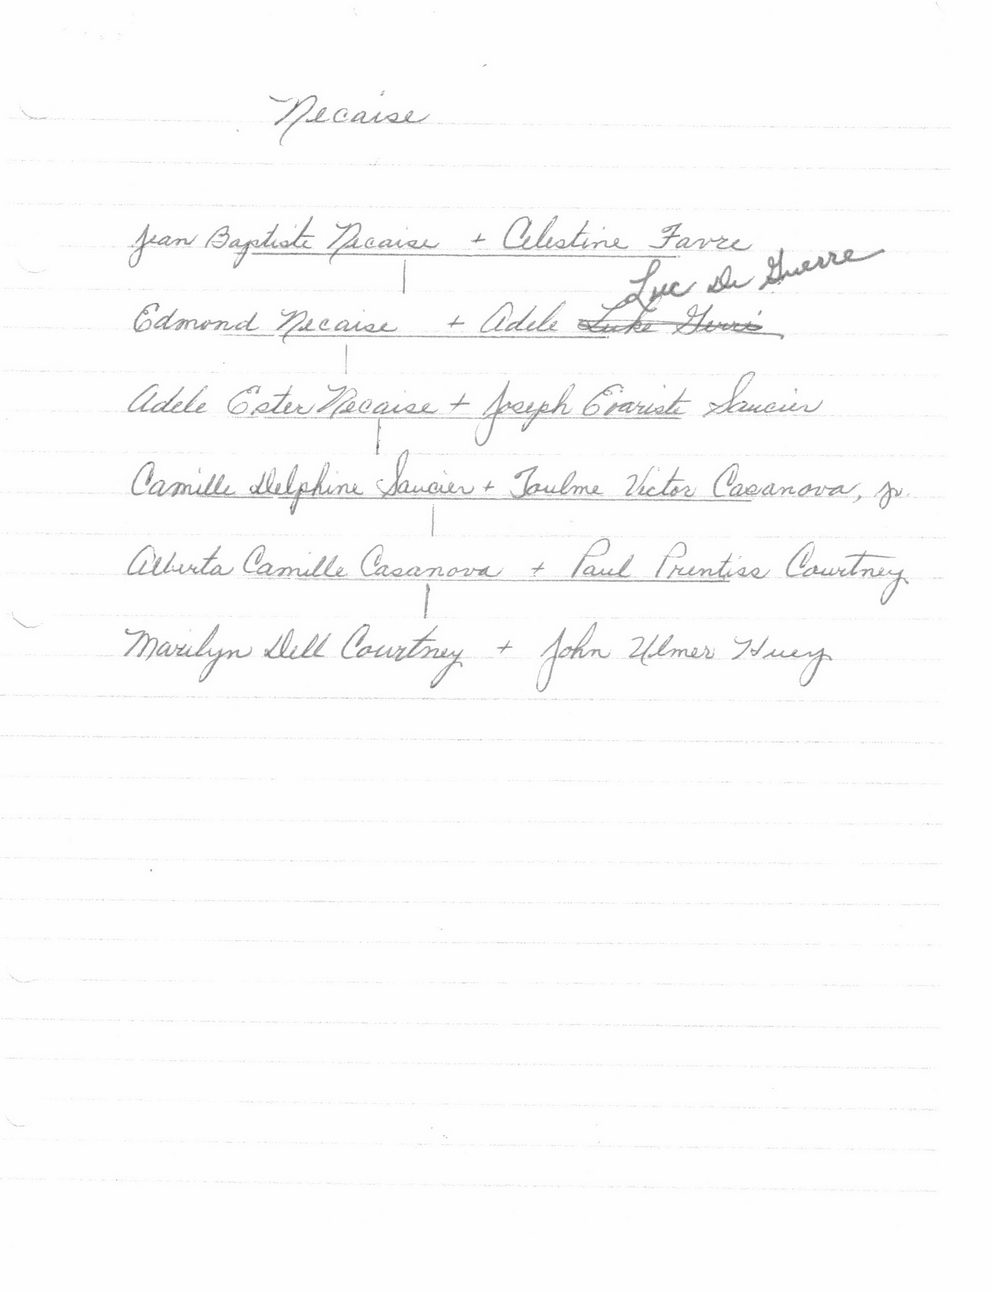 Necaise
Jean Baptiste Necaise + Celestine Favre
Luc De Guerre
Edmond Necaise + Adele Luke Gerri
Adele Ester Necaise + Joseph Evariste Saucier
Camille Delphine Saucier + Toulme Victor Casanova, Jr.
Alberta Camille Casanova + Paul Prentiss Courtney
Marilyn Dell Courtney + John Ulmer Huey